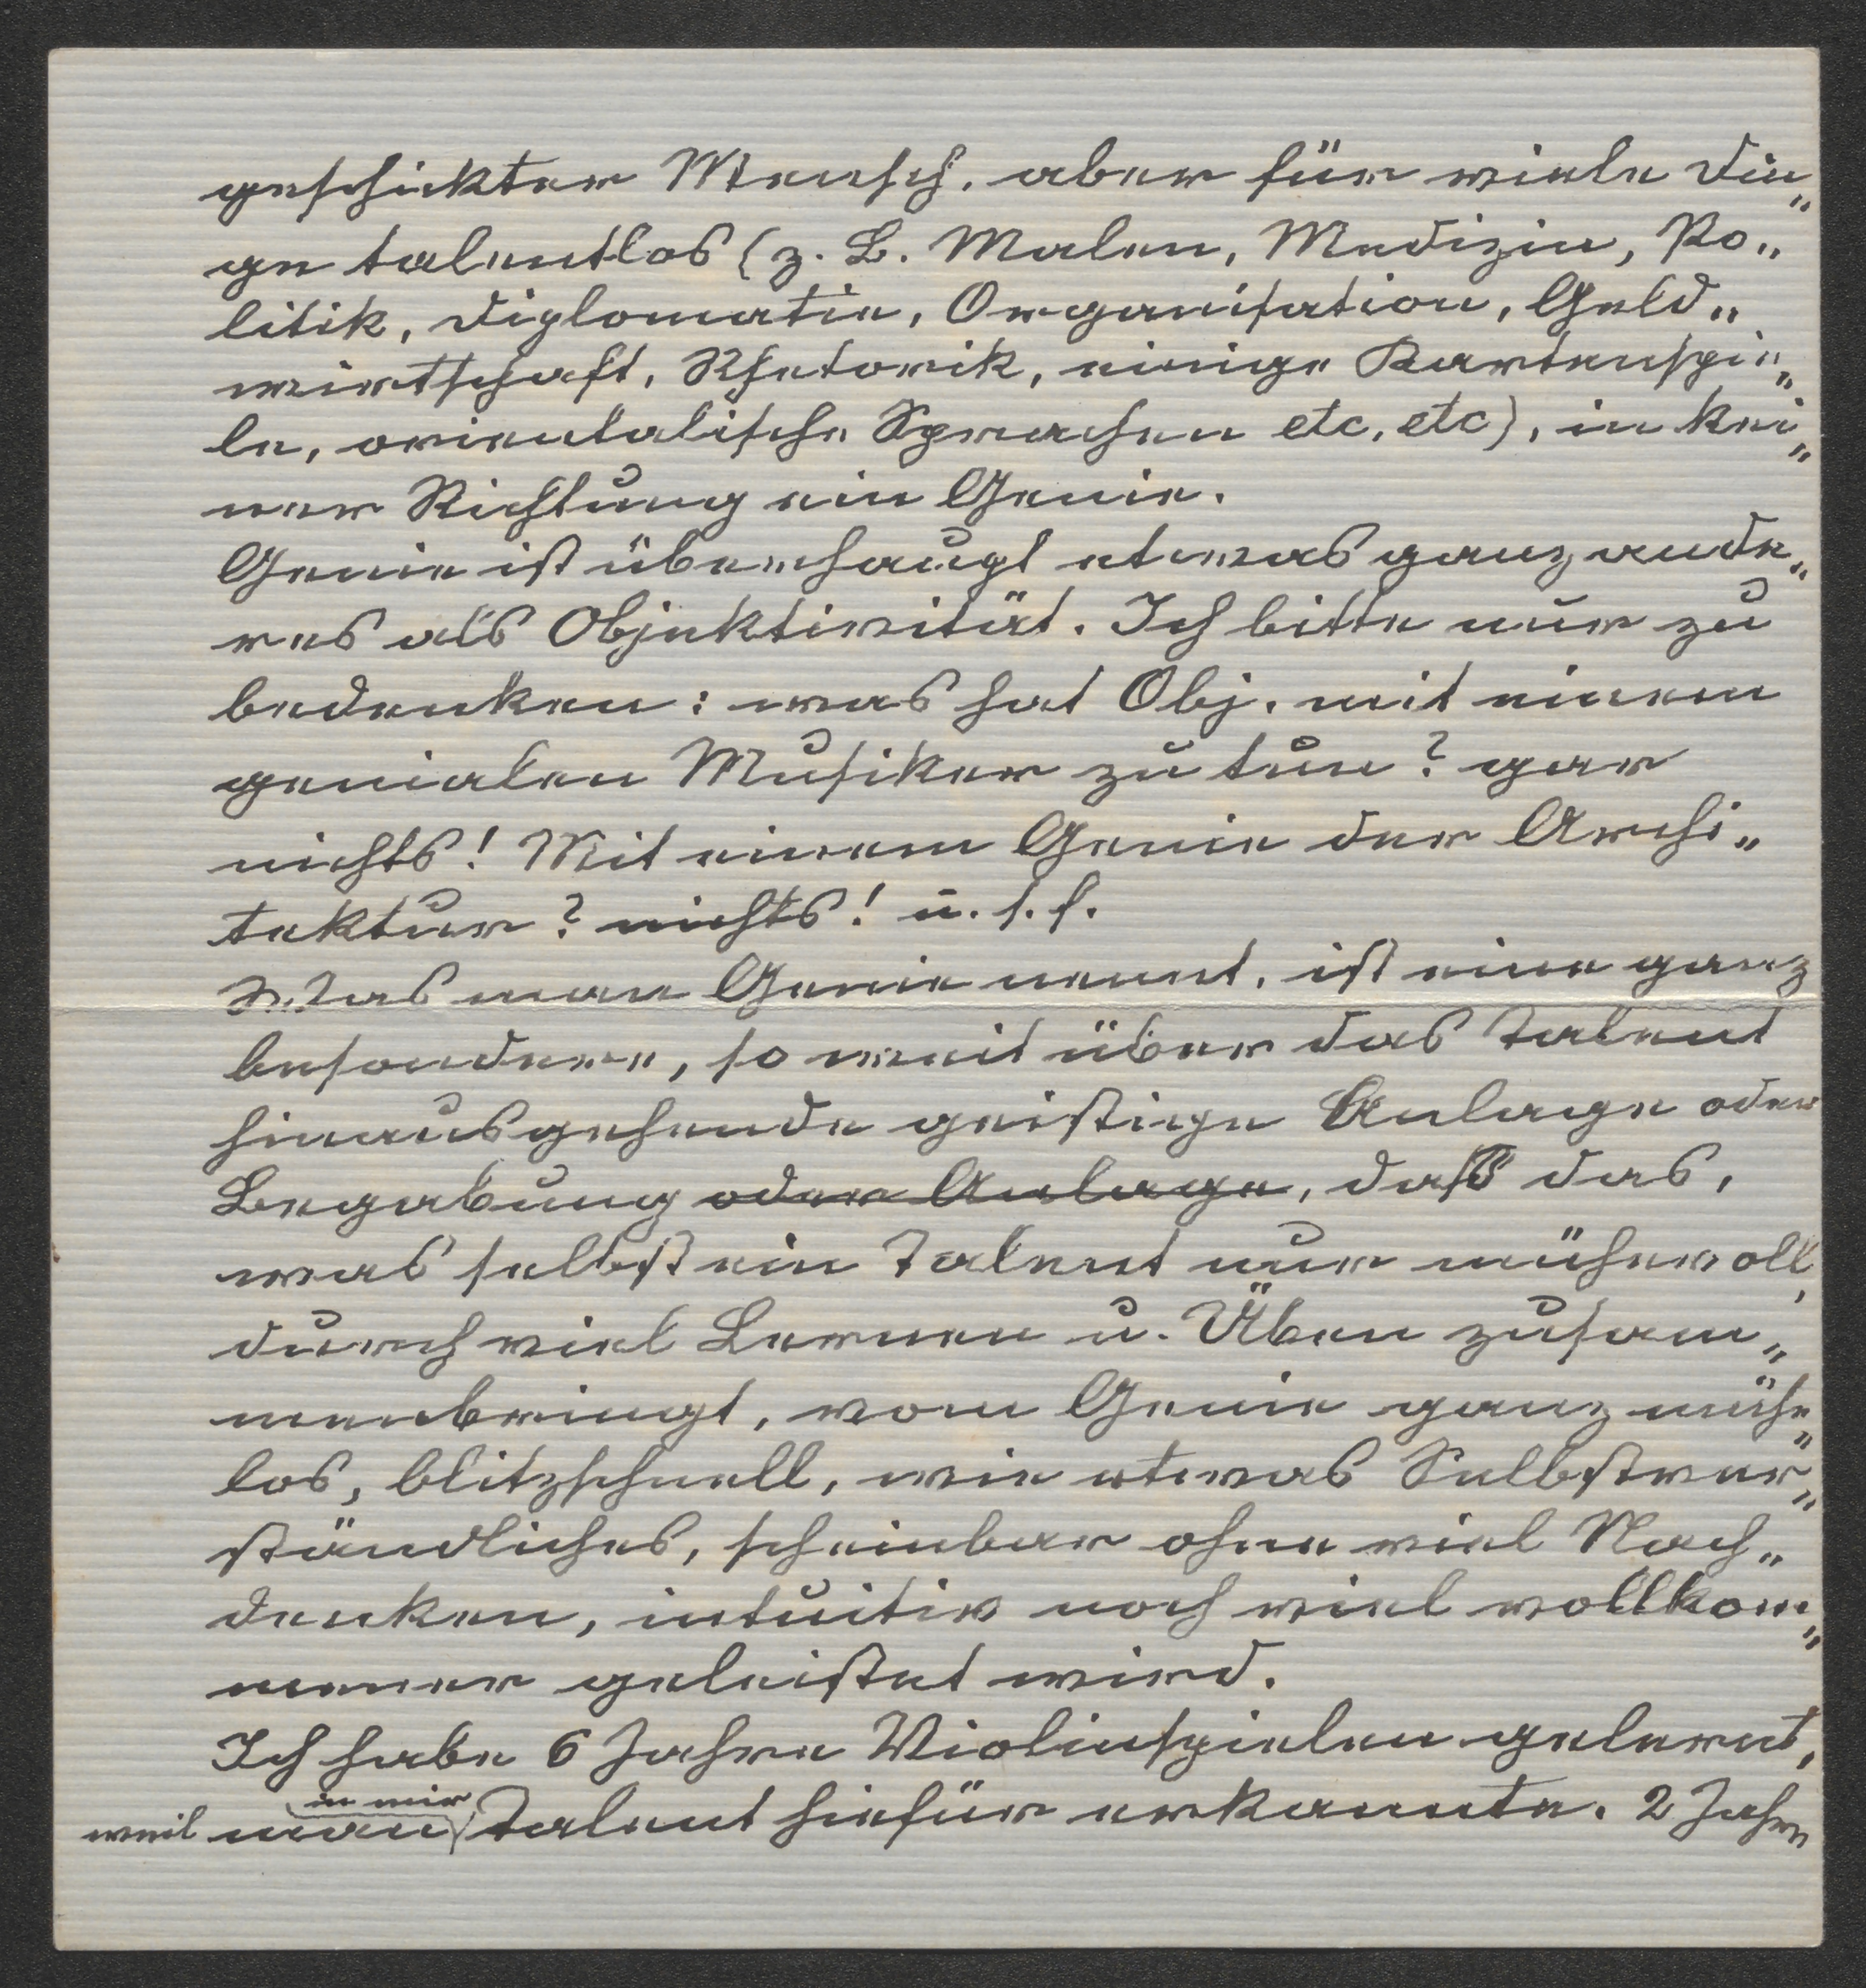 geschickter Mensch, aber für viele Din„
ge talentlos (z. B. Malen, Medizin, Po„
litik, Diplomatie, Organisation, Geld„
wirtschaft, Rhetorik, einige Kartenspie„
le, orientalische Sprachen etc, etc), in kei„
ner Richtung ein Genie.
Genie ist überhaupt etwas ganz ande„
res als Objektivität. Ich bitte nur zu
bedenken: was hat Obj. mit einem
genialen Musiker zu tun? gar
nichts! Mit einem Genie der Archi„
tektur? nichts! u. s. f.
Was man Genie nennt, ist eine ganz
besondere, so weit über das Talent
hinausgehende geistige Anlage oder
Begabung oder Anlage, daß das,
was selbst ein Talent nur mühevoll,
durch viel Lernen u. Üben zusam„
menbringt, vom Genie ganz mühe„
los, blitzschnell, wie etwas Selbstver„
ständliches, scheinbar ohne viel Nach„
denken, intuitiv noch viel vollkom„
mener geleistet wird.
Ich habe 6 Jahre Violinspielen gelernt,
weil man in mir Talent hiefür erkannte. 2 Jahre